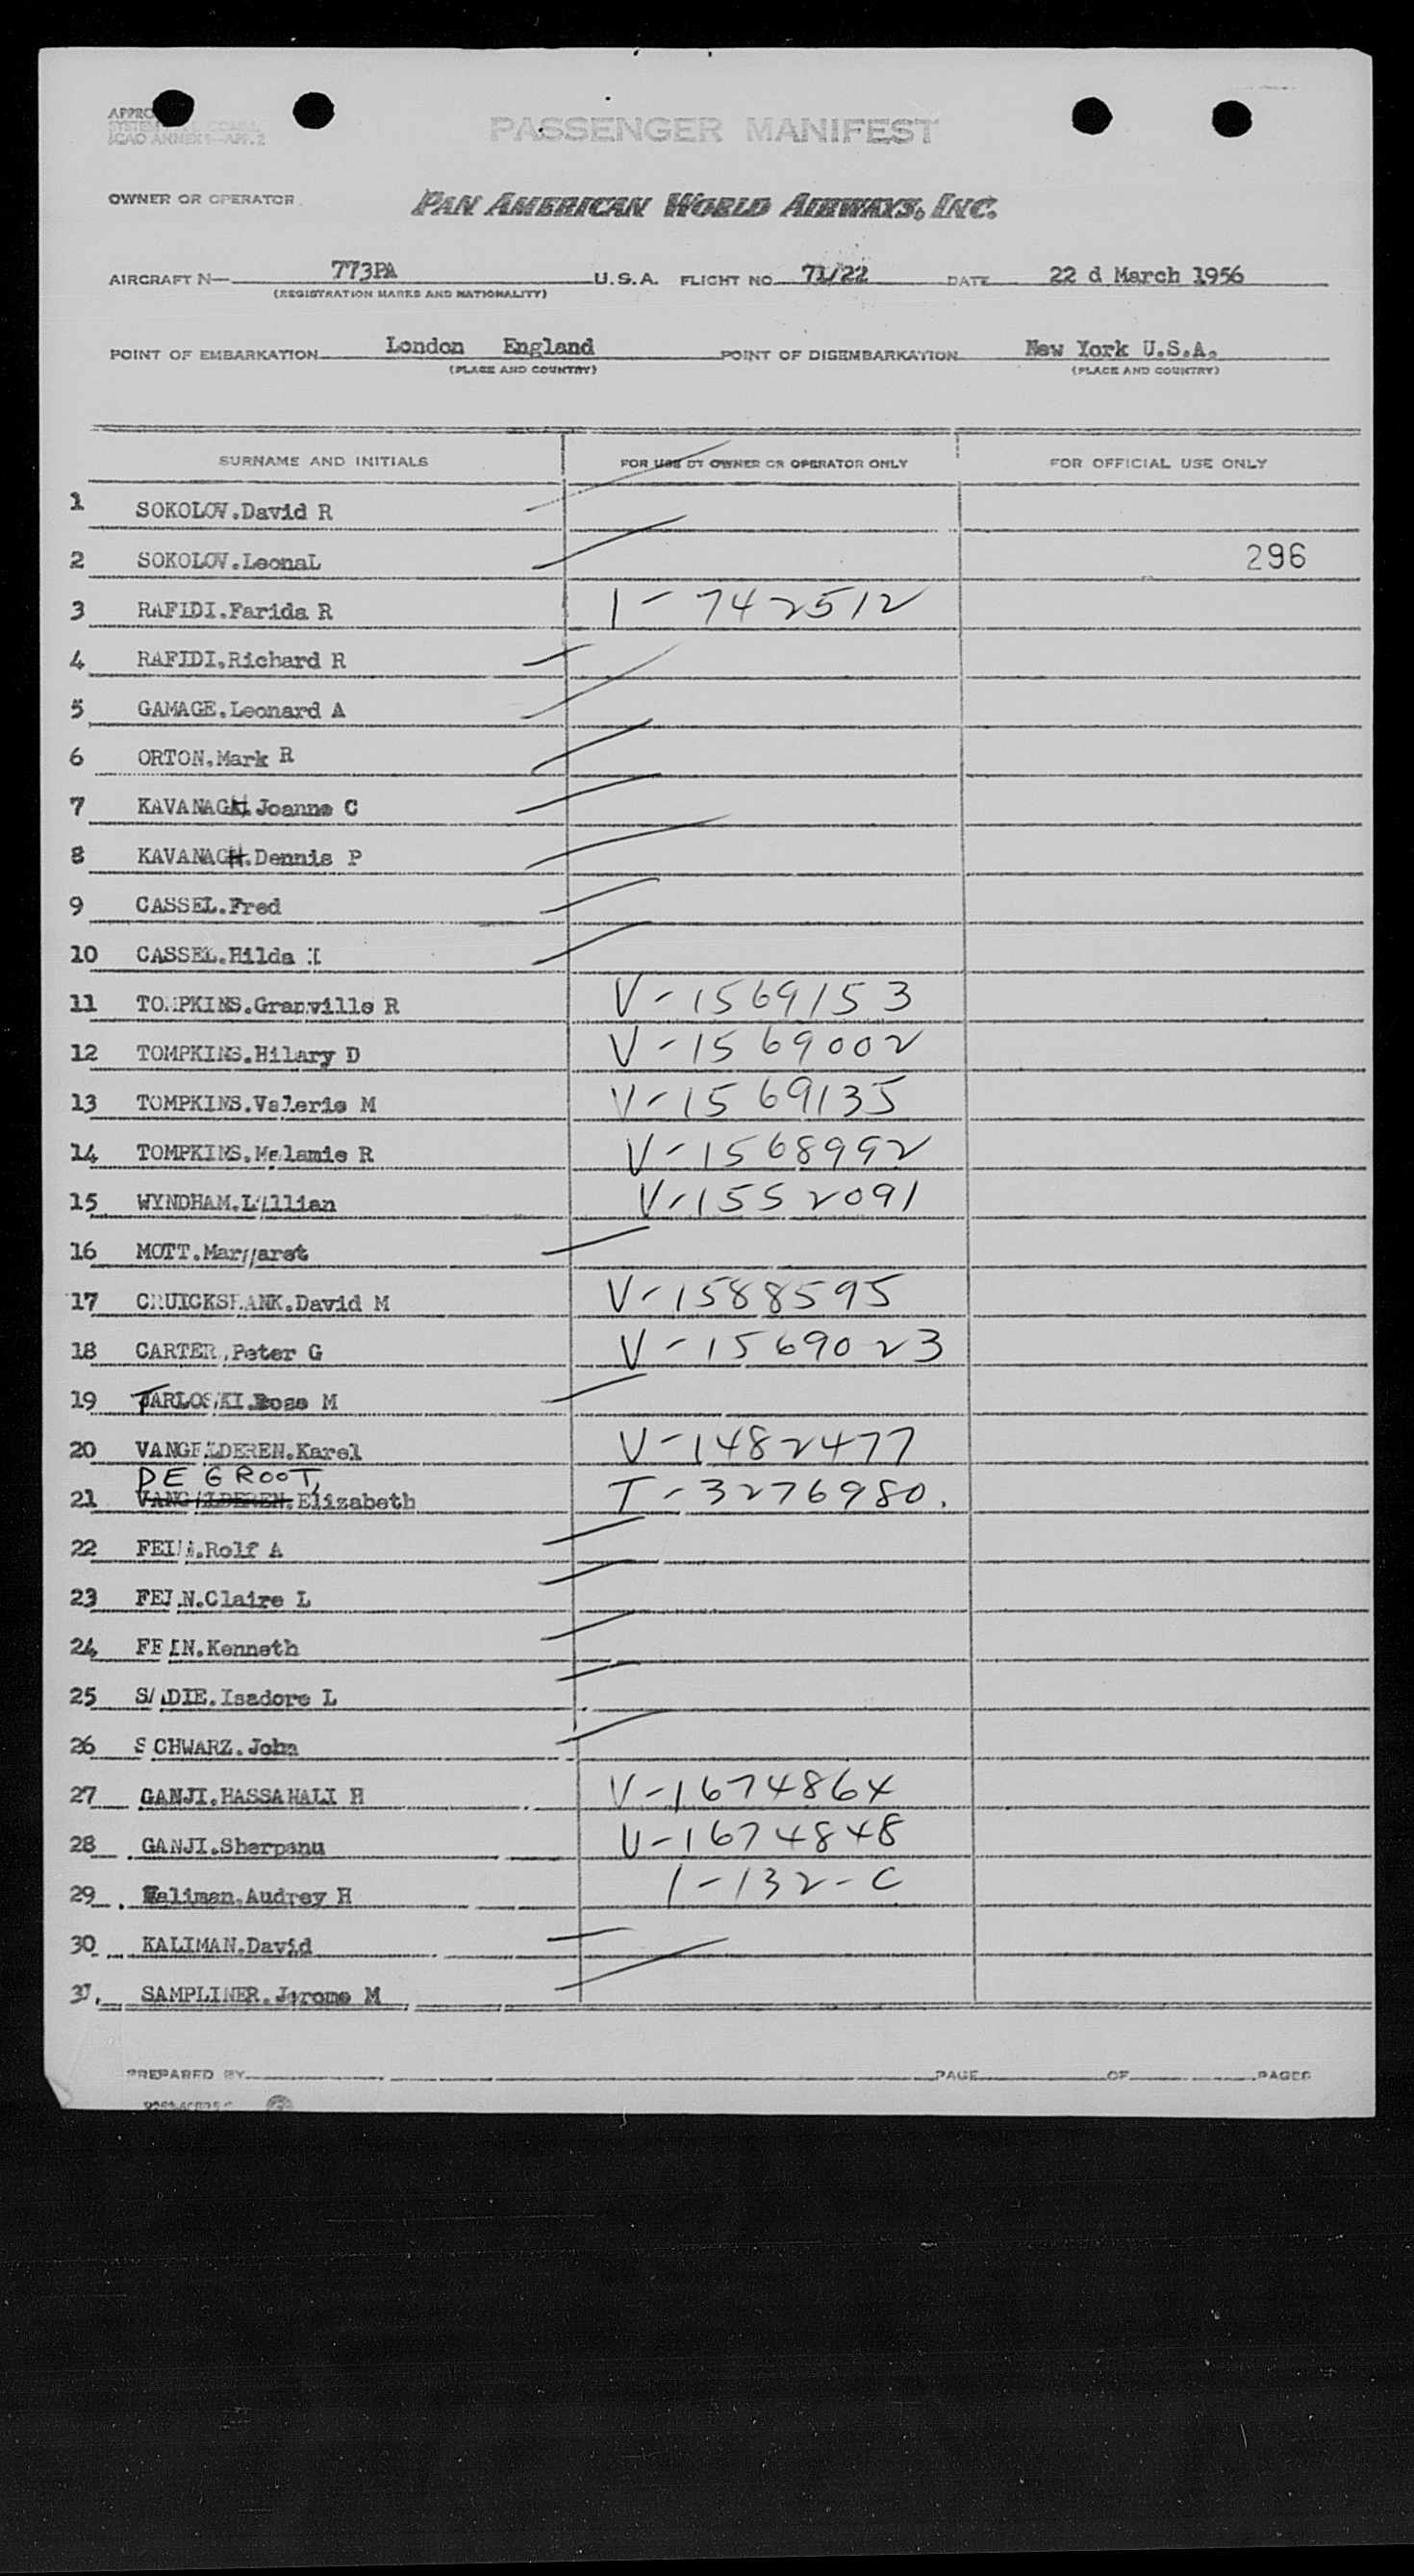 PASSENGER MANIFEST
ICAO ANNEX 9—APP. 2
OWNER OR OPERATOR
PAN AMERICAN WORLD AIRWAYS, INC.
AIRCRAFT N— 773PA U.S.A. FLIGHT NO. 71/22 DATE 22 d March 1956
(REGISTRATION MARKS AND NATIONALITY)
POINT OF EMBARKATION London England POINT OF DISEMBARKATION New York U.S.A.
(PLACE AND COUNTRY) (PLACE AND COUNTRY)
SURNAME AND INITIALS FOR USE BY OWNER OR OPERATOR ONLY FOR OFFICIAL USE ONLY
1 SOKOLOV.David R
2 SOKOLOV.LeonaL 296
3 RAFIDI.Farida R 1-742512
4 RAFIDI.Richard R
5 GAMAGE.Leonard A
6 ORTON.Mark R
7 KAVANAGH.Joanne C
8 KAVANAGH.Dennis P
9 CASSEL.Fred
10 CASSEL.Hilda
11 TOMPKINS.Granville R V-1569153
12 TOMPKINS.Hilary D V-1569002
13 TOMPKINS.Valerie M V-1569135
14 TOMPKINS.Melanie R V-1568992
15 WYNDHAM.Lillian V-1552091
16 MOTT.Margaret
17 CRUICKSHANK.David M V-1588595
18 CARTER.Peter G V-1569023
19 TARLOSKI.Rose M
20 VANGELDEREN.Karel V-1482477
DE GROOT,
21 VANGELDEREN.Elizabeth T-3276980.
22 FEIN.Rolf A
23 FEIN.Claire L
24 FEIN.Kenneth
25 SADIE.Isadore L
26 SCHWARZ.John
27 GANJI.HASSAHALI H V-1674864
28 GANJI.Sherpanu V-1674848
29 Kaliman.Audrey H 1-132-C
30 KALIMAN.David
31. SAMPLINER.Jerome M
PREPARED BY PAGE OF PAGES